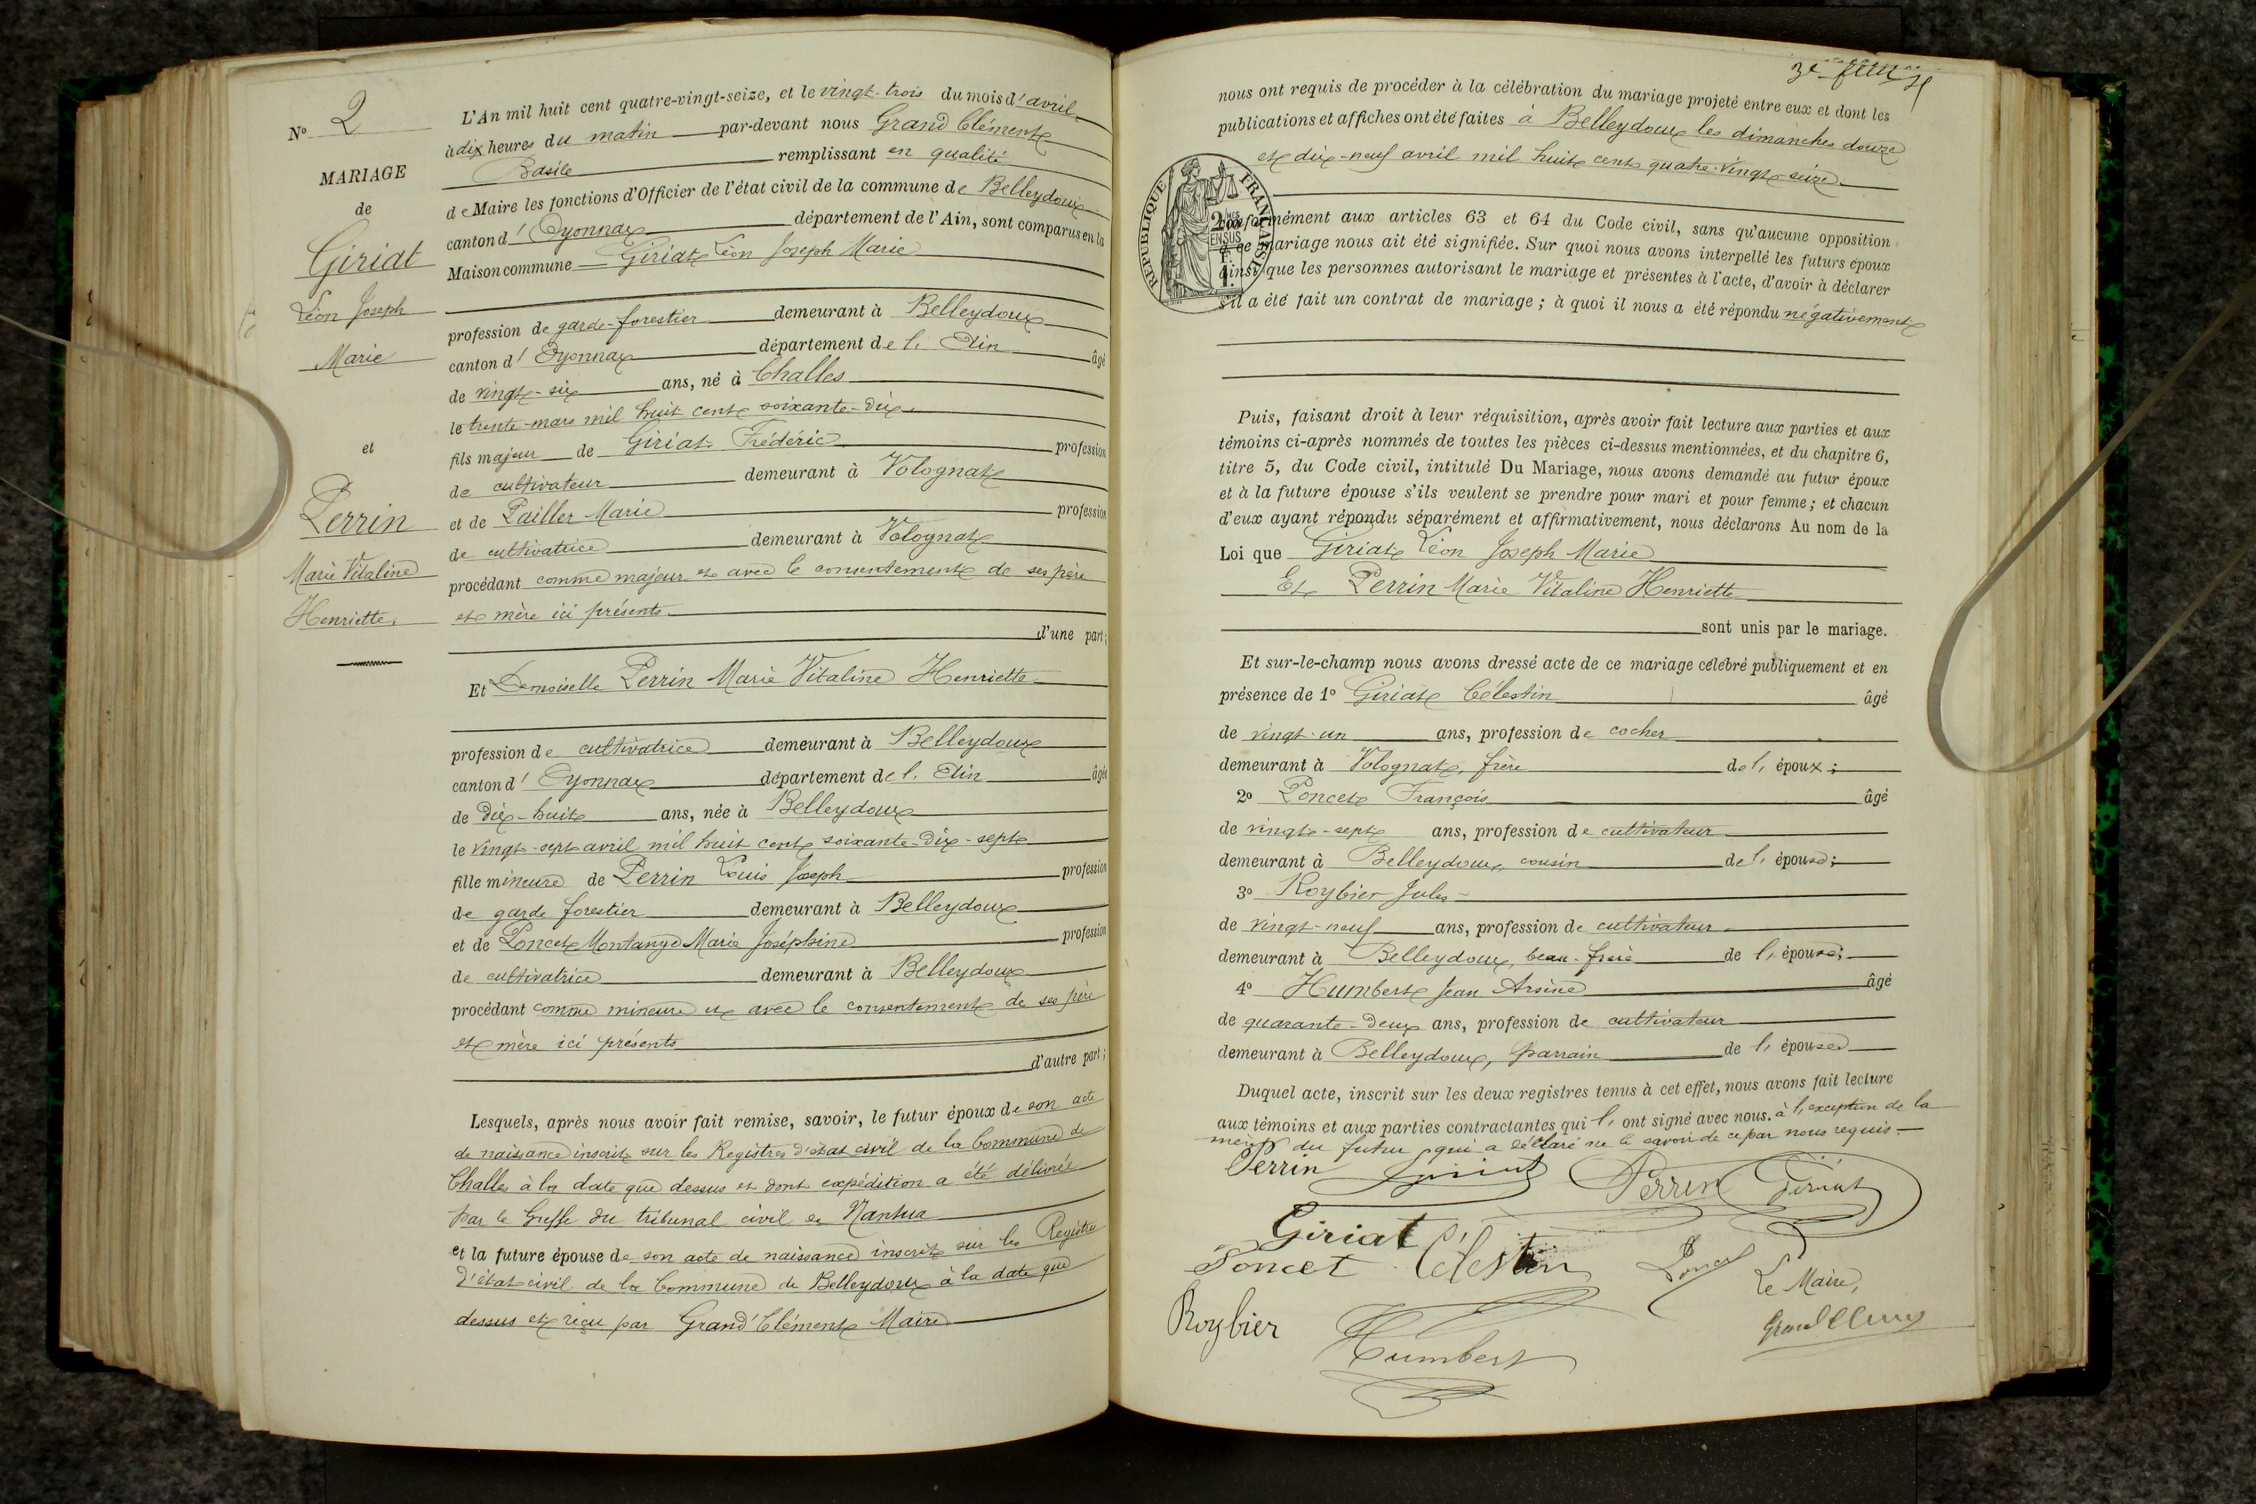 N° 2
MARIAGE
de
Giriat
Léon Joseph
Marie
et
Perrin
Marie Vitaline
Henriette
L'An mil huit cent quatre-vingt-seize, et le vingt-trois du mois d'avril
à dix heures du matin par-devant nous Grand Clément
Basile remplissant en qualité
de Maire les fonctions d'Officier de l'état civil de la commune de Belleydoux
canton d'Oyonnax département de l'Ain, sont comparus en la
Maison commune Giriat Léon Joseph Marie
profession de garde-forestier demeurant à Belleydoux
canton d'Oyonnax département de l'Ain âgé
de vingt-six ans, né à Challes
le trente mars mil huit cent soixante-dix
fils majeur de Giriat Frédéric profession
de cultivateur demeurant à Volognat
et de Pailler Marie profession
de cultivatrice demeurant à Volognat
procédant comme majeur et avec le consentement de ses père
et mère ici présents
d'une part;
Et Demoiselle Perrin Marie Vitaline Henriette
profession de cultivatrice demeurant à Belleydoux
canton d'Oyonnax département de l'Ain âgée
de dix-huit ans, née à Belleydoux
le vingt-sept avril mil huit cent soixante-dix-sept
fille mineure de Perrin Louis Joseph profession
de garde forestier demeurant à Belleydoux
et de Poncet Montange Marie Joséphine profession
de cultivatrice demeurant à Belleydoux
procédant comme mineure et avec le consentement de ses père
et mère ici présents
d'autre part;
Lesquels, après nous avoir fait remise, savoir, le futur époux de son acte
de naissance inscrit sur les Registres d'état civil de la Commune de
Challes à la date que dessus et dont expédition a été délivrée
par le Greffe du tribunal civil de Nantua
et la future épouse de son acte de naissance inscrit sur les Registres
d'état civil de la Commune de Belleydoux à la date que
dessus et reçu par Grand'Clément Maire
nous ont requis de procéder à la célébration du mariage projeté entre eux et dont les
publications et affiches ont été faites à Belleydoux les dimanches douze
et dix-neuf avril mil huit cent quatre-vingt-seize
RÉPUBLIQUE FRANÇAISE
conformément aux articles 63 et 64 du Code civil, sans qu'aucune opposition
à ce mariage nous ait été signifiée. Sur quoi nous avons interpellé les futurs époux
ainsi que les personnes autorisant le mariage et présentes à l'acte, d'avoir à déclarer
s'il a été fait un contrat de mariage; à quoi il nous a été répondu négativement
Puis, faisant droit à leur réquisition, après avoir fait lecture aux parties et aux
témoins ci-après nommés de toutes les pièces ci-dessus mentionnées, et du chapitre 6,
titre 5, du Code civil, intitulé Du Mariage, nous avons demandé au futur époux
et à la future épouse s'ils veulent se prendre pour mari et pour femme; et chacun
d'eux ayant répondu séparément et affirmativement, nous déclarons Au nom de la
Loi que Giriat Léon Joseph Marie
Et Perrin Marie Vitaline Henriette
sont unis par le mariage.
Et sur-le-champ nous avons dressé acte de ce mariage célébré publiquement et en
présence de 1° Giriat Célestin âgé
de vingt-un ans, profession de cocher
demeurant à Volognat, frère de l'époux;
2° Poncet François âgé
de vingt-sept ans, profession de cultivateur
demeurant à Belleydoux, cousin de l'épouse;
3° Roybier Jules
de vingt-neuf ans, profession de cultivateur
demeurant à Belleydoux, beau-frère de l'épouse;
4° Humbert Jean Arsène âgé
de quarante-deux ans, profession de cultivateur
demeurant à Belleydoux, parrain de l'épouse
Duquel acte, inscrit sur les deux registres tenus à cet effet, nous avons fait lecture
aux témoins et aux parties contractantes qui l'ont signé avec nous. à l'exception de la
mère du futur qui a déclaré ne le savoir de ce par nous requis.
Perrin Giriat Perrin Giriat
Giriat
Poncet Célestin Poncet Le Maire,
Roybier Humbert Grand Clément